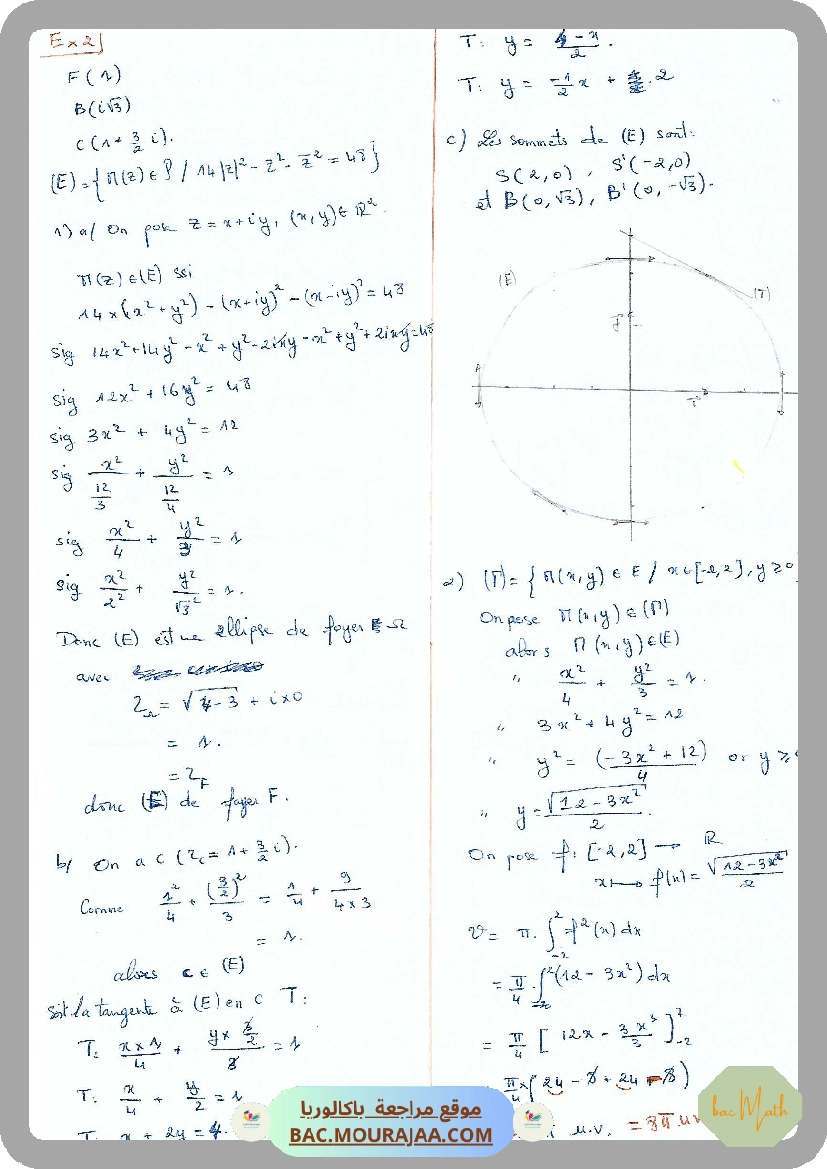 Ex 2
F(1)
B(i√3)
C(1+ 3/2 i).
(E) = { M(z) ∈ P / 14|z|² - z² - z̄² = 48 }
1) a/ On pose z = x+iy, (x,y) ∈ ℝ².
M(z) ∈ (E) ssi
14×(x²+y²) - (x+iy)² - (x-iy)² = 48
sig 14x²+14y² - x² + y² - 2ixy - x² + y² + 2ixy = 48
sig 12x² + 16y² = 48
sig 3x² + 4y² = 12
sig x²/(12/3) + y²/(12/4) = 1
sig x²/4 + y²/3 = 1
sig x²/2² + y²/√3² = 1.
Donc (E) est une ellipse de foyer Ω
avec
z_Ω = √(4-3) + i×0
= 1.
= z_F
donc (E) de foyer F.
b/ On a C (z_c = 1 + 3/2 i).
Comme 1²/4 + (3/2)²/3 = 1/4 + 9/(4×3)
= 1.
alors C ∈ (E)
Soit la tangente à (E) en C T:
T: x×1/4 + y×(3/2)/3 = 1
T: x/4 + y/2 = 1
T: x + 2y = 4.
T: y = (4-x)/2.
T: y = -1/2 x + 2
c) Les sommets de (E) sont:
S(2,0), S'(-2,0)
et B(0,√3), B'(0,-√3).
(E)
(T)
2) (Γ) = { M(x,y) ∈ E / x ∈ [-2,2], y ≥ 0
On pose M(x,y) ∈ (Γ)
alors M(x,y) ∈ (E)
" x²/4 + y²/3 = 1.
" 3x² + 4y² = 12
" y² = (-3x² + 12)/4 or y ≥
" y = √(12 - 3x²)/2.
On pose f: [-2,2] → ℝ
x ↦ f(x) = √(12-3x²)/2
V = π. ∫₋₂² f²(x) dx
= π/4 . ∫₋₂² (12 - 3x²) dx
= π/4 [ 12x - 3x³/3 ]₋₂²
π/4 × (24 - 8 + 24 - 8)
u.v. = 8π u.v
موقع مراجعة باكالوريا
BAC.MOURAJAA.COM
bac Math